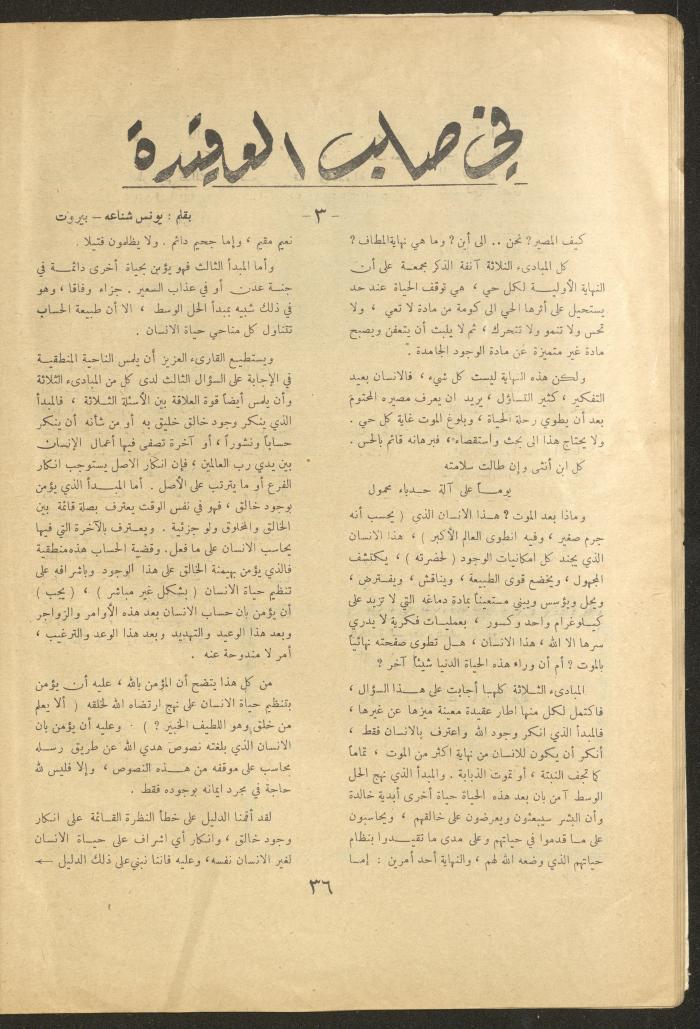 في صلب العقيدة
- ٣ -
بقلم : يونس شناعه – بيروت
كيف المصير ? نحن .. الى أين ? وما هي نهاية المطاف ?
كل المبادىء الثلاثة آنفة الذكر مجمعة على أن
النهاية الأولية لكل حي ، هي توقف الحياة عند حد
يستحيل على أثرها الحي الى كومة من مادة لا تعي ، ولا
تحس ولا تنمو ولا تتحرك ، ثم لا يلبث أن يتعفن ويصبح
مادة غير متميزة عن مادة الوجود الجامدة .
ولكن هذه النهاية ليست كل شيء ، فالانسان بعيد
التفكير ، كثير التساؤل ، يريد ان يعرف مصيره المحتوم
بعد أن يطوي رحلة الحياة ، وبلوغ الموت غاية كل حي .
ولا يحتاج هذا الى بحث وأستقصاء ، فبرهانه قائم بالحس .
كل ابن أنثى وإن طالت سلامته
يوماً على آلة حدباء محمول
وماذا بعد الموت ? هذا الانسان الذي ( يحسب أنه
جرم صغير ، وفيه انطوى العالم الأكبر ) ، هذا الانسان
الذي يجند كل امكانيات الوجود ( لحضرته ) ، يكتشف
المجهول ، ويخضع قوى الطبيعة ، ويناقش ، ويفترض ،
ويحل ويؤسس ويبني مستعيناً بمادة دماغه التي لا تزيد على
كيلوغرام واحد وكسور ، بعمليات فكرية لا يدري
سرها الا الله ، هذا الانسان ، هل تطوى صفحته نهائياً
بالموت ? أم أن وراء هذه الحياة الدنيا شيئاً آخر ?
المبادىء الثلاثة كلهيا أجابت على هذا السؤال ،
فاكتمل لكل منها اطار عقيدة معينة ميزها عن غيرها ،
فالمبدأ الذي انكر وجود الله واعترف بالانسان فقط ،
أنكر أن يكون للانسان من نهاية اكثر من الموت ، تماماً
كما تجف النبتة ، أو تموت الذبابة . والمبدأ الذي نهج الحل
الوسط آمن بان بعد هذه الحياة حياة أخرى أبدية خالدة
وأن البشر سيبعثون ويعرضون على خالقهم ، ويحاسبون
على ما قدموا في حياتهم وعلى مدى ما تقيدوا بنظام
حياتهم الذي وضعه الله لهم ، والنهاية أحد أمرين : إما
نعيم مقيم ، وإما جحيم دائم . ولا يظلمون فتيلا .
وأما المبدأ الثالث فهو يؤمن بحياة أخرى دائمة في
جنة عدن أو في عذاب السعير . جزاء وفاقا ، وهو
في ذلك شبيه بمبدأ الحل الوسط ، الا أن طبيعة الحساب
تتناول كل مناحي حياة الانسان .
ويستطيع القارىء العزيز أن يلمس الناحية المنطقية
في الإجابة على السؤال الثالث لدى كل من المبادىء الثلاثة
وأن يلمس أيضاً قوة العلاقة بين الأسئلة الثلاثة ، فالمبدأ
الذي ينكر وجود خالق خليق به أو من شأنه أن ينكر
حساباً ونشوراً ، أو آخرة تصفى فيها أعمال الإنسان
بين يدي رب العالمين ، فإن انكار الاصل يستوجب انكار
الفرع أو ما يترتب على الأصل . أما المبدأ الذي يؤمن
بوجود خالق ، فهو في نفس الوقت يعترف بصلة قائمة بين
الخالق والمخلوق ولو جزئية . ويعترف بالآخرة التي فيها
يحاسب الانسان على ما فعل . وقضية الحساب هذه منطقية
فالذي يؤمن بهيمنة الخالق على هذا الوجود وباشرافه على
تنظيم حياة الانسان ( بشكل غير مباشر ) ، ( يجب )
أن يؤمن بان حساب الانسان بعد هذه الأوامر والزواجر
وبعد هذا الوعيد والتهديد وبعد هذا الوعد والترغيب ،
أمر لا مندوحة عنه .
من كل هذا يتضح أن المؤمن بالله ، عليه أن يؤمن
بتنظيم حياة الانسان على نهج ارتضاه الله لخلقه ( ألا يعلم
من خلق وهو اللطيف الخبير ? ) . وعليه أن يؤمن بان
الانسان الذي بلغته نصوص هدي الله عن طريق رسله
محاسب على موقفه من هذه النصوص ، وإلا فليس لله
حاجة في مجرد ايمانه بوجوده فقط .
لقد أقمنا الدليل على خطأ النظرة القائمة على انكار
وجود خالق ، وانكار أي اشراف على حياة الانسان
لغير الانسان نفسه، وعليه فاننا نبني على ذلك الدليل ←
٣٦